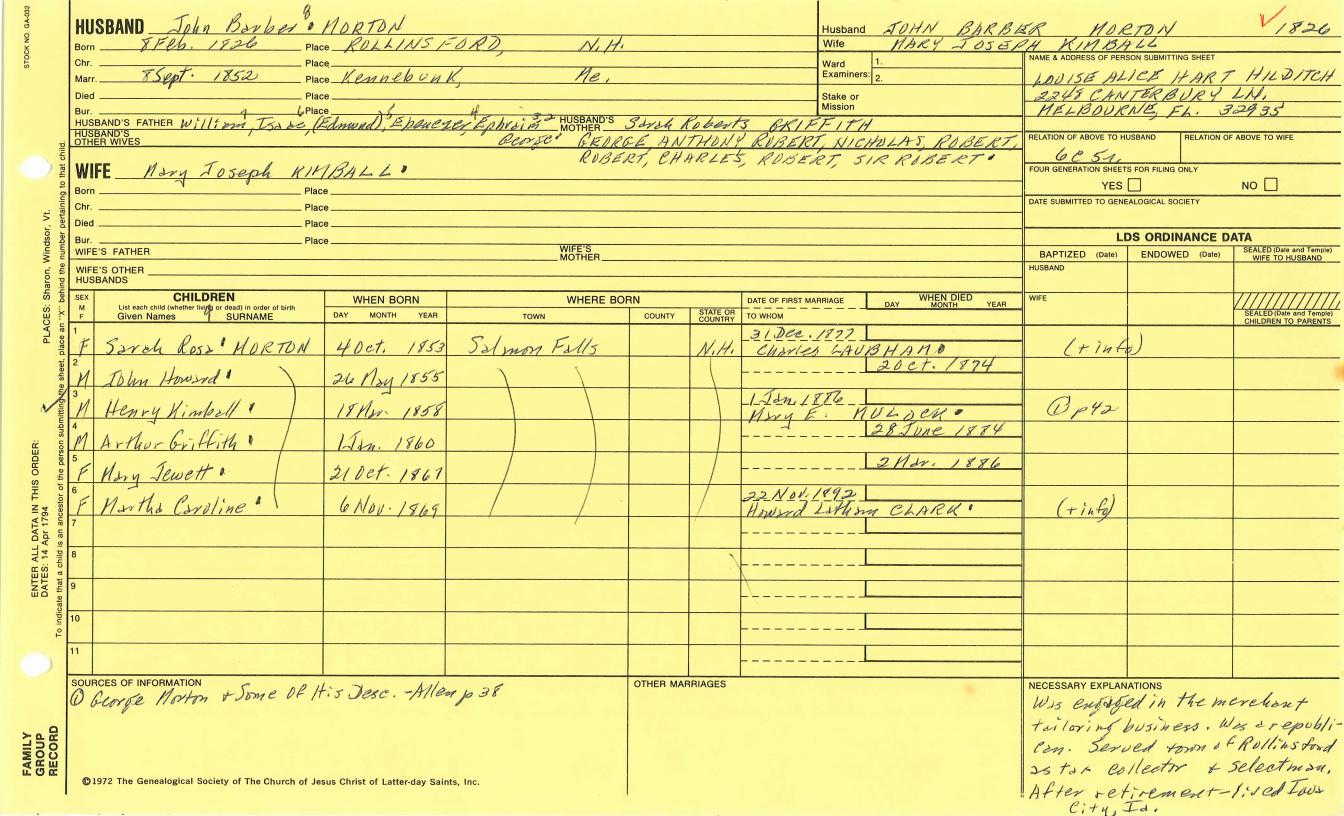 STOCK NO. GA-032
HUSBAND John Barber 8 MORTON
Born 8 Feb. 1826 Place ROLLINSFORD, N.H.
Chr. Place
Marr. 8 Sept. 1852 Place Kennebunk, Me.
Died Place
Bur. Place
HUSBAND'S FATHER William 7, Isaac 6, (Edmund) 5, Ebenezer 4, Ephraim 3-2 HUSBAND'S MOTHER Sarah Roberts GRIFFITH
HUSBAND'S OTHER WIVES George' GEORGE ANTHONY ROBERT, NICHOLAS, ROBERT,
ROBERT, CHARLES, ROBERT, SIR ROBERT
WIFE Mary Joseph KIMBALL
Born Place
Chr. Place
Died Place
Bur. Place
WIFE'S FATHER WIFE'S MOTHER
WIFE'S OTHER HUSBANDS
Husband JOHN BARBER MORTON 1826
Wife MARY JOSEPH KIMBALL
Ward Examiners: 1.
2.
Stake or Mission
NAME & ADDRESS OF PERSON SUBMITTING SHEET
LOUISE ALICE HART HILDITCH
2249 CANTERBURY LN.
MELBOURNE, FL. 32935
RELATION OF ABOVE TO HUSBAND RELATION OF ABOVE TO WIFE
6C 5r.
FOUR GENERATION SHEETS FOR FILING ONLY
YES NO
DATE SUBMITTED TO GENEALOGICAL SOCIETY
LDS ORDINANCE DATA
BAPTIZED (Date) ENDOWED (Date) SEALED (Date and Temple) WIFE TO HUSBAND
HUSBAND
WIFE
SEALED (Date and Temple) CHILDREN TO PARENTS
SEX M F CHILDREN WHEN BORN WHERE BORN DATE OF FIRST MARRIAGE WHEN DIED
List each child (whether living or dead) in order of birth
Given Names 9 SURNAME DAY MONTH YEAR TOWN COUNTY STATE OR COUNTRY TO WHOM DAY MONTH YEAR
1 31 Dec. 1877
F Sarah Rosa MORTON 4 Oct. 1853 Salmon Falls N.H. Charles LAUBHAM (+ info)
2 2 Oct. 1874
M John Howard 26 May 1855
3 1 Jan. 1886
M Henry Kimball 18 Mar. 1858 Mary E. MULOCK ① p42
4 28 June 1884
M Arthur Griffith 1 Jan. 1860
5 2 Mar. 1886
F Mary Jewett 21 Oct. 1867
6 22 Nov. 1892
F Martha Caroline 6 Nov. 1869 Howard Latham CLARK (+ info)
7
8
9
10
11
SOURCES OF INFORMATION
① George Morton & Some Of His Desc. -Allen p 38
OTHER MARRIAGES
NECESSARY EXPLANATIONS
Was engaged in the merchant
tailoring business. Was a republi-
can. Served town of Rollinsford
as tax collector & selectman.
After retirement-lived Iowa
City, Ia.
©1972 The Genealogical Society of The Church of Jesus Christ of Latter-day Saints, Inc.
FAMILY GROUP RECORD
ENTER ALL DATA IN THIS ORDER:
DATES: 14 Apr 1794
PLACES: Sharon, Windsor, Vt.
To indicate that a child is an ancestor of the person submitting the sheet, place an "X" behind the number pertaining to that child.